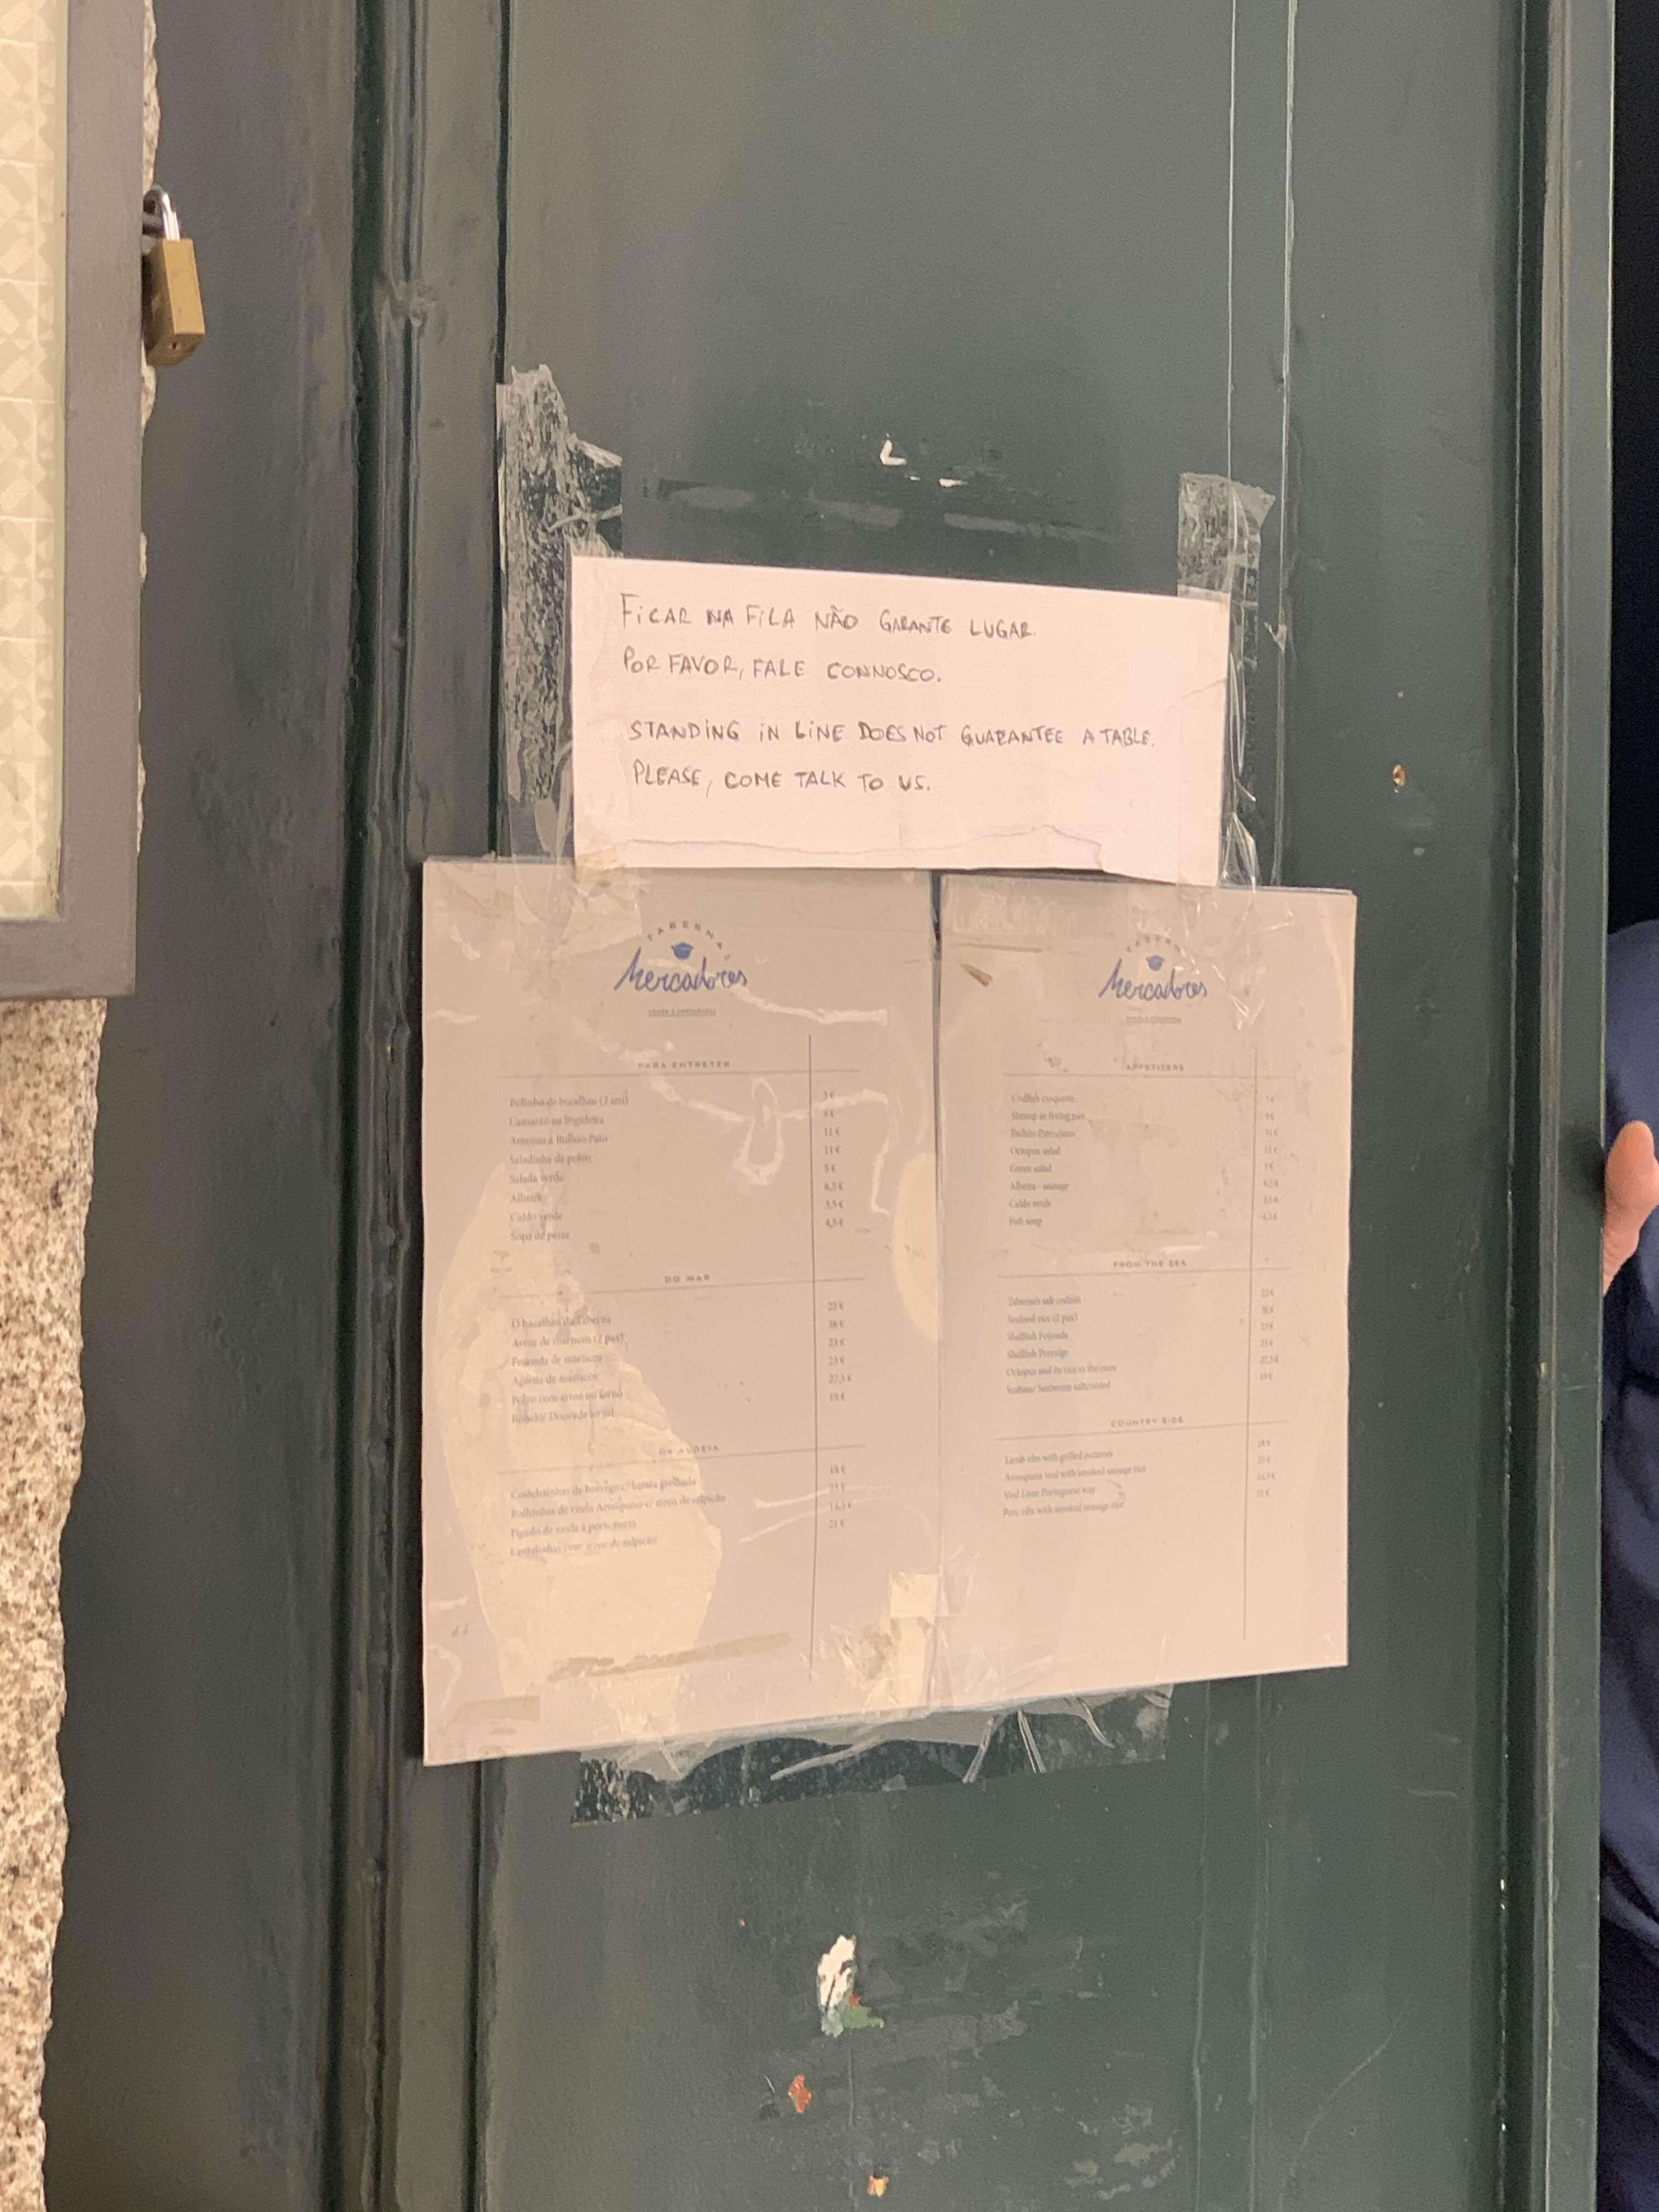 FICAR NA FILA NÃO GARANTE LUGAR.
POR FAVOR, FALE CONNOSCO.
STANDING IN LINE DOES NOT GUARANTEE A TABLE.
PLEASE, COME TALK TO US.
TABERNA
Mercadores
PARA ENTRETER
Bolinho de bacalhau (3 uni) 3 €
Camarão na frigideira 9 €
Ameijoa à Bulhão Pato 11 €
Saladinha de polvo 11 €
Salada verde 5 €
Alheira 6,5 €
Caldo verde 3,5 €
Sopa de peixe 4,5 €
DO MAR
O bacalhau da Taberna 22 €
Arroz de mariscos (2 pax) 38 €
Feijoada de mariscos 23 €
Açorda de mariscos 23 €
Polvo com arroz no forno 27,5 €
Robalo/ Dourada ao sal
DA ALDEIA
Costeletinhas de borrego c/ batata grelhada 18 €
Rolhinhas de vitela Arouquesa c/ arroz de salpicão
Fígado de vitela à portuguesa 14,5 €
Costelinhas com arroz de salpicão 21 €
TABERNA
Mercadores
APPETIZERS
Codfish croquette
Shrimp in frying pan
Bulhão Pato clams
Octopus salad
Green salad
Alheira - sausage
Caldo verde
Fish soup
FROM THE SEA
Taberna's salt codfish 22 €
Seafood rice (2 pax) 38 €
Shellfish Feijoada 23 €
Shellfish Porridge 23 €
Octopus and its rice in the oven 27,5 €
Seabass/ Seabream saltcrusted
COUNTRY SIDE
Lamb ribs with grilled potatoes 18 €
Arouquesa veal with smoked sausage rice
Veal Liver Portuguese way 14,5 €
Porc ribs with smoked sausage rice 21 €